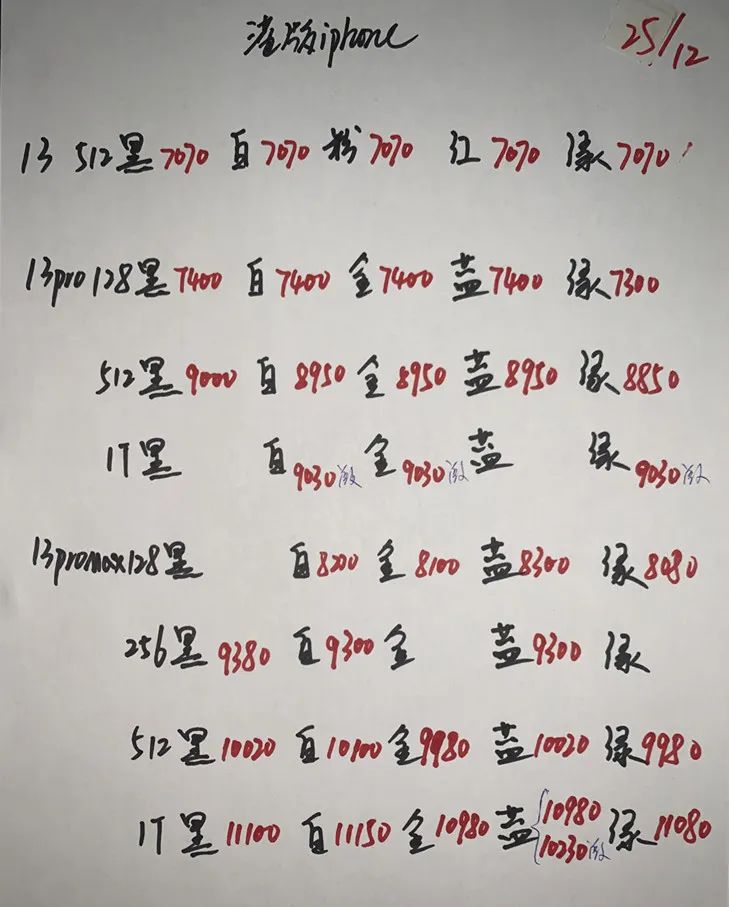 港版iphone 25/12
13 512黑7070 白7070 粉7070 红7070 绿7070
13pro128黑7400 白7400 金7400 蓝7400 绿7300
512黑9000 白8950 金8950 蓝8950 绿8850
1T黑 白9030激 金9030激 蓝 绿9030激
13promax128黑 白8200 金8100 蓝8300 绿8080
256黑9380 白9300 金 蓝9300 绿
512黑10020 白10100 金9980 蓝10020 绿9980
1T黑11100 白11150 金10980 蓝{10980 10230激 绿11080